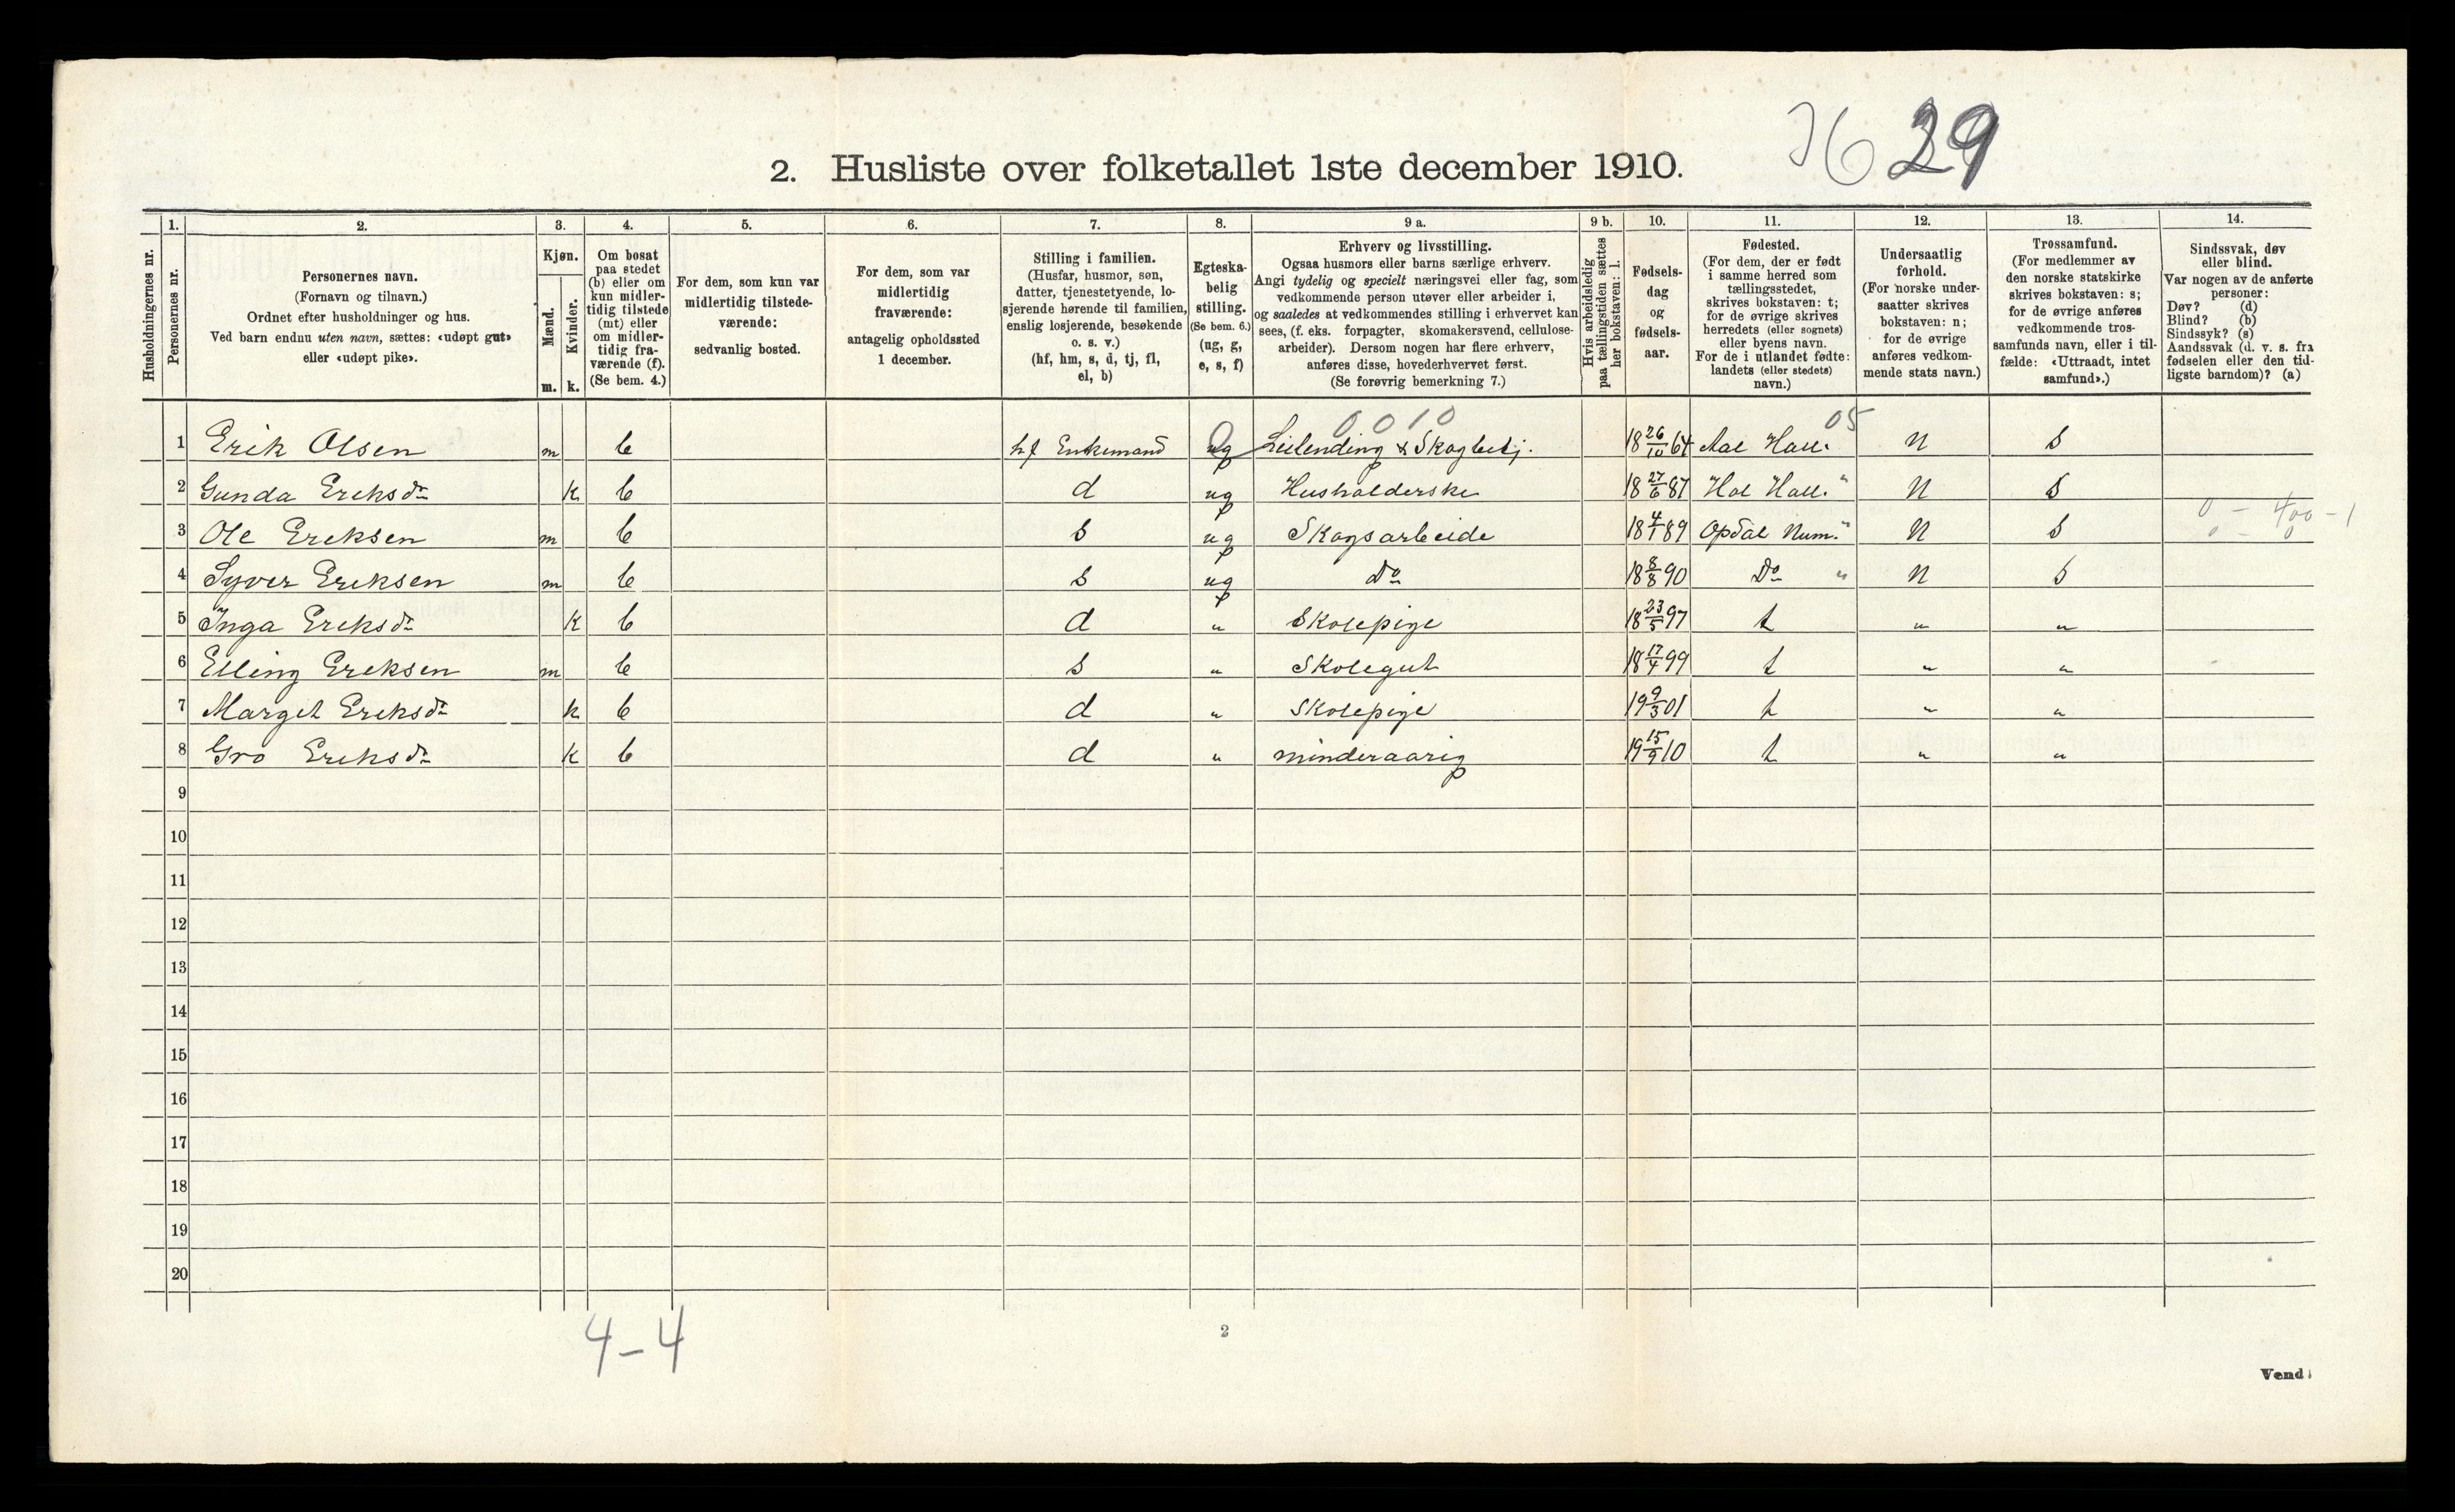 29
2. Husliste over folketallet 1ste december 1910.
Husholdningernes nr.
1. Personernes nr.
2. Personernes navn.
(Fornavn og tilnavn.)
Ordnet efter husholdninger og hus.
Ved barn endnu uten navn, sættes: «udøpt gut»
eller «udøpt pike».
3. Kjøn.
Mænd. m.
Kvinder. k.
4. Om bosat
paa stedet
(b) eller om
kun midler-
tidig tilstede
(mt) eller
om midler-
tidig fra-
værende (f).
(Se bem. 4.)
5. For dem, som kun var
midlertidig tilstede-
værende:
sedvanlig bosted.
6. For dem, som var
midlertidig
fraværende:
antagelig opholdssted
1 december.
7. Stilling i familien.
(Husfar, husmor, søn,
datter, tjenestetyende, lo-
sjerende hørende til familien,
enslig losjerende, besøkende
o. s. v.)
(hf, hm, s, d, tj, fl,
el, b)
8. Egteska-
belig
stilling.
(Se bem. 6.)
(ug, g,
e, s, f)
9 a. Erhverv og livsstilling.
Ogsaa husmors eller barns særlige erhverv.
Angi tydelig og specielt næringsvei eller fag, som
vedkommende person utøver eller arbeider i,
og saaledes at vedkommendes stilling i erhvervet kan
sees, (f. eks. forpagter, skomakersvend, cellulose-
arbeider). Dersom nogen har flere erhverv,
anføres disse, hovederhvervet først.
(Se forøvrig bemerkning 7.)
9 b. Hvis arbeidsledig
paa tællingstiden sættes
her bokstaven: l.
10. Fødsels-
dag
og
fødsels-
aar.
11. Fødested.
(For dem, der er født
i samme herred som
tællingsstedet,
skrives bokstaven: t;
for de øvrige skrives
herredets (eller sognets)
eller byens navn.
For de i utlandet fødte:
landets (eller stedets)
navn.)
12. Undersaatlig
forhold.
(For norske under-
saatter skrives
bokstaven: n;
for de øvrige
anføres vedkom-
mende stats navn.)
13. Trossamfund.
(For medlemmer av
den norske statskirke
skrives bokstaven: s;
for de øvrige anføres
vedkommende tros-
samfunds navn, eller i til-
fælde: «Uttraadt, intet
samfund».)
14. Sindssvak, døv
eller blind.
Var nogen av de anførte
personer:
Døv? (d)
Blind? (b)
Sindssyk? (s)
Aandssvak (d. v. s. fra
fødselen eller den tid-
ligste barndom)? (a)
0 0 1 0 05
1 Erik Olsen m b hf Enkemand ug Leilending & Skogbetj. 18 26/10 64 Aal Hall. n s
2 Gunda Ereksdr k b d ug Husholderske 18 27/6 87 Hol Hall. " n s
3 Ole Ereksen m b s ug Skogsarbeide 18 4/1 89 Opdal Num. " n s
0 - 400 - 1
0 - 0
4 Syver Ereksen m b s ug Do 18 8/8 90 Do " n s
5 Inga Ereksdr k b d " Skolepige 18 23/5 97 t " "
6 Elling Ereksen m b s " Skolegut 18 17/4 99 t " "
7 Marget Ereksdr k b d " Skolepige 19 9/3 01 t " "
8 Gro Ereksdr k b d " minderaarig 19 15/9 10 t " "
9
10
11
12
13
14
15
16
17
18
19
20
4-4
2
Vend